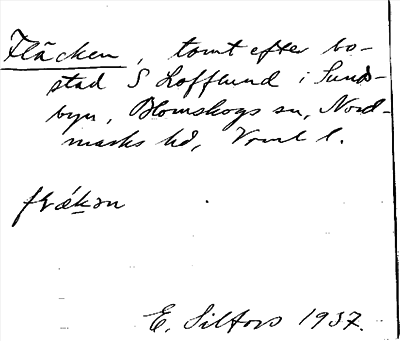 Fläcken, tomt efter bo-
stad S Lofflund i Sund-
byn, Blomskogs sn, Nord-
marks hd, Vrml l.
fɫǽkən
E. Silfors 1937.